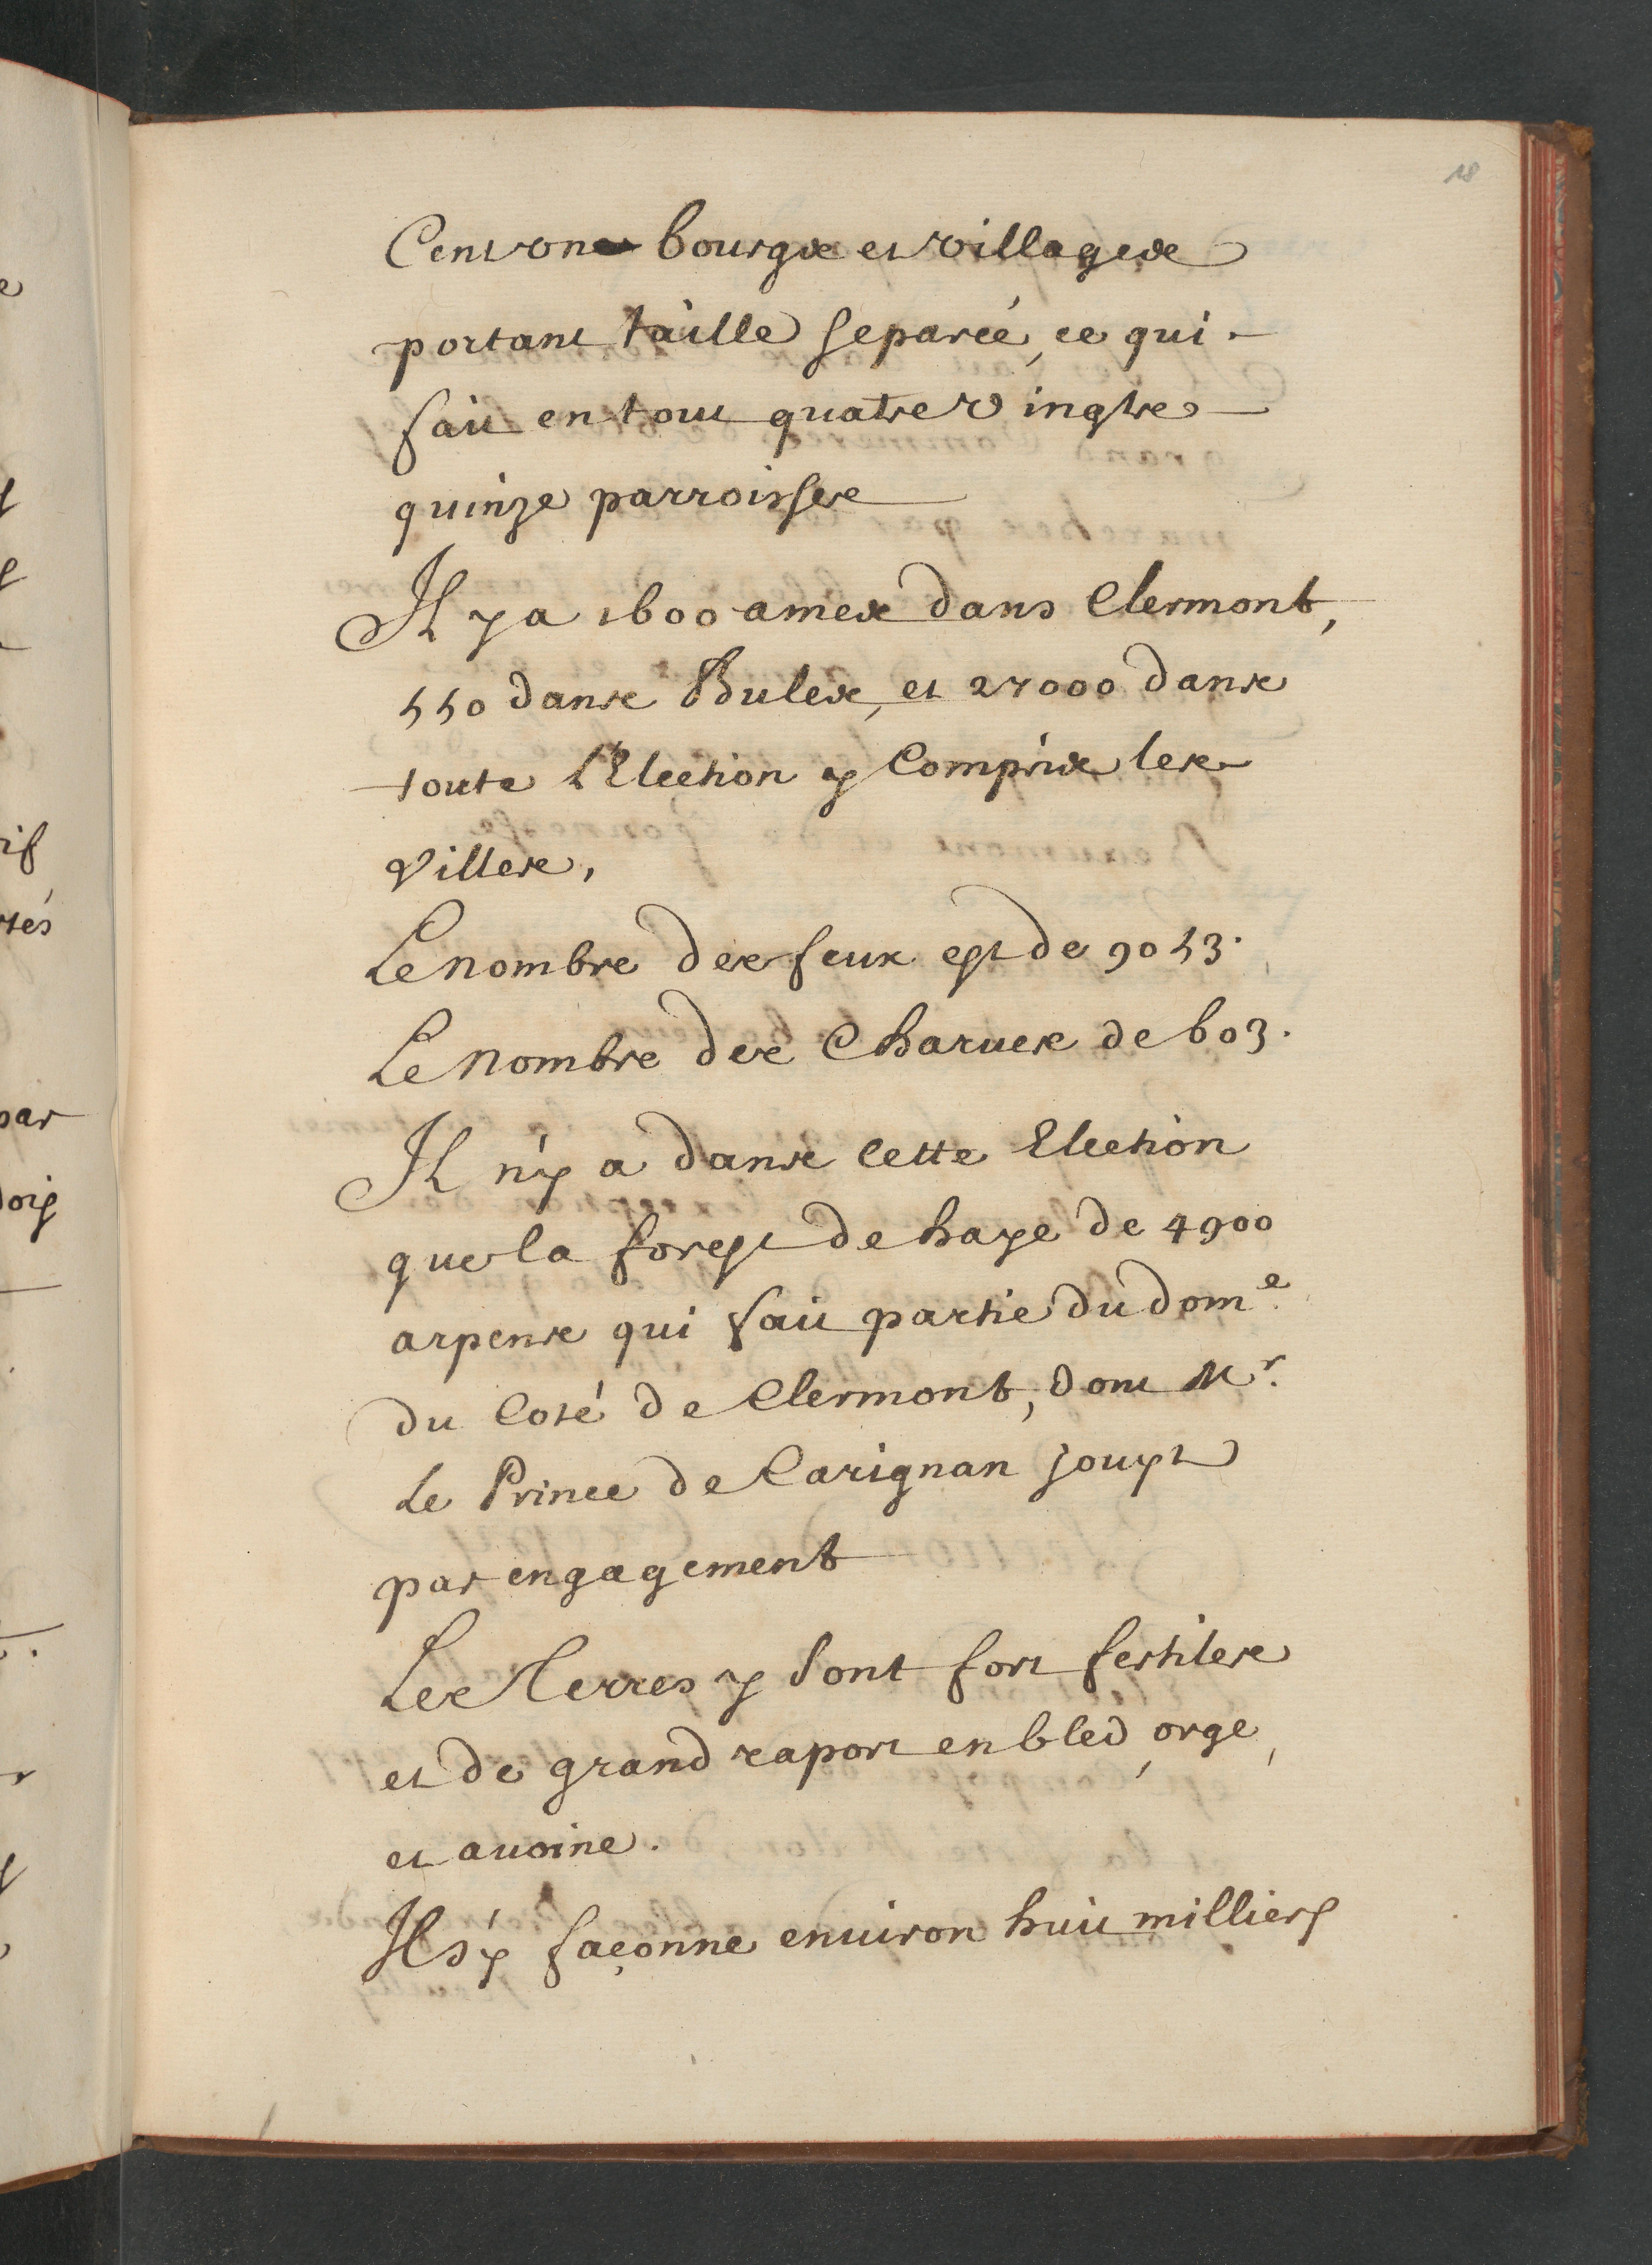 18
Cent vn bourgs et villages
portant taille separée, ce qui
fait en tout quatre vingts
quinze parroisses
Il y a 1600 ames dans Clermont,
550 dans Bules, et 27000 dans
toute l'Election y Compris les
Villes,
Le nombre des feux est de 9053.
Le Nombre des Charues de 603.
Il n'y a dans Cette Election
que la forest de haye de 4900
arpens qui fait partie du dom.e
du Coté de Clermont, dont Mr.
Le Prince de Carignan jouyt
par engagement
Les Terres y sont fort fertiles
et de grand raport en bled, orge,
et auoine.
Il s'y façonne enuiron huit milliers